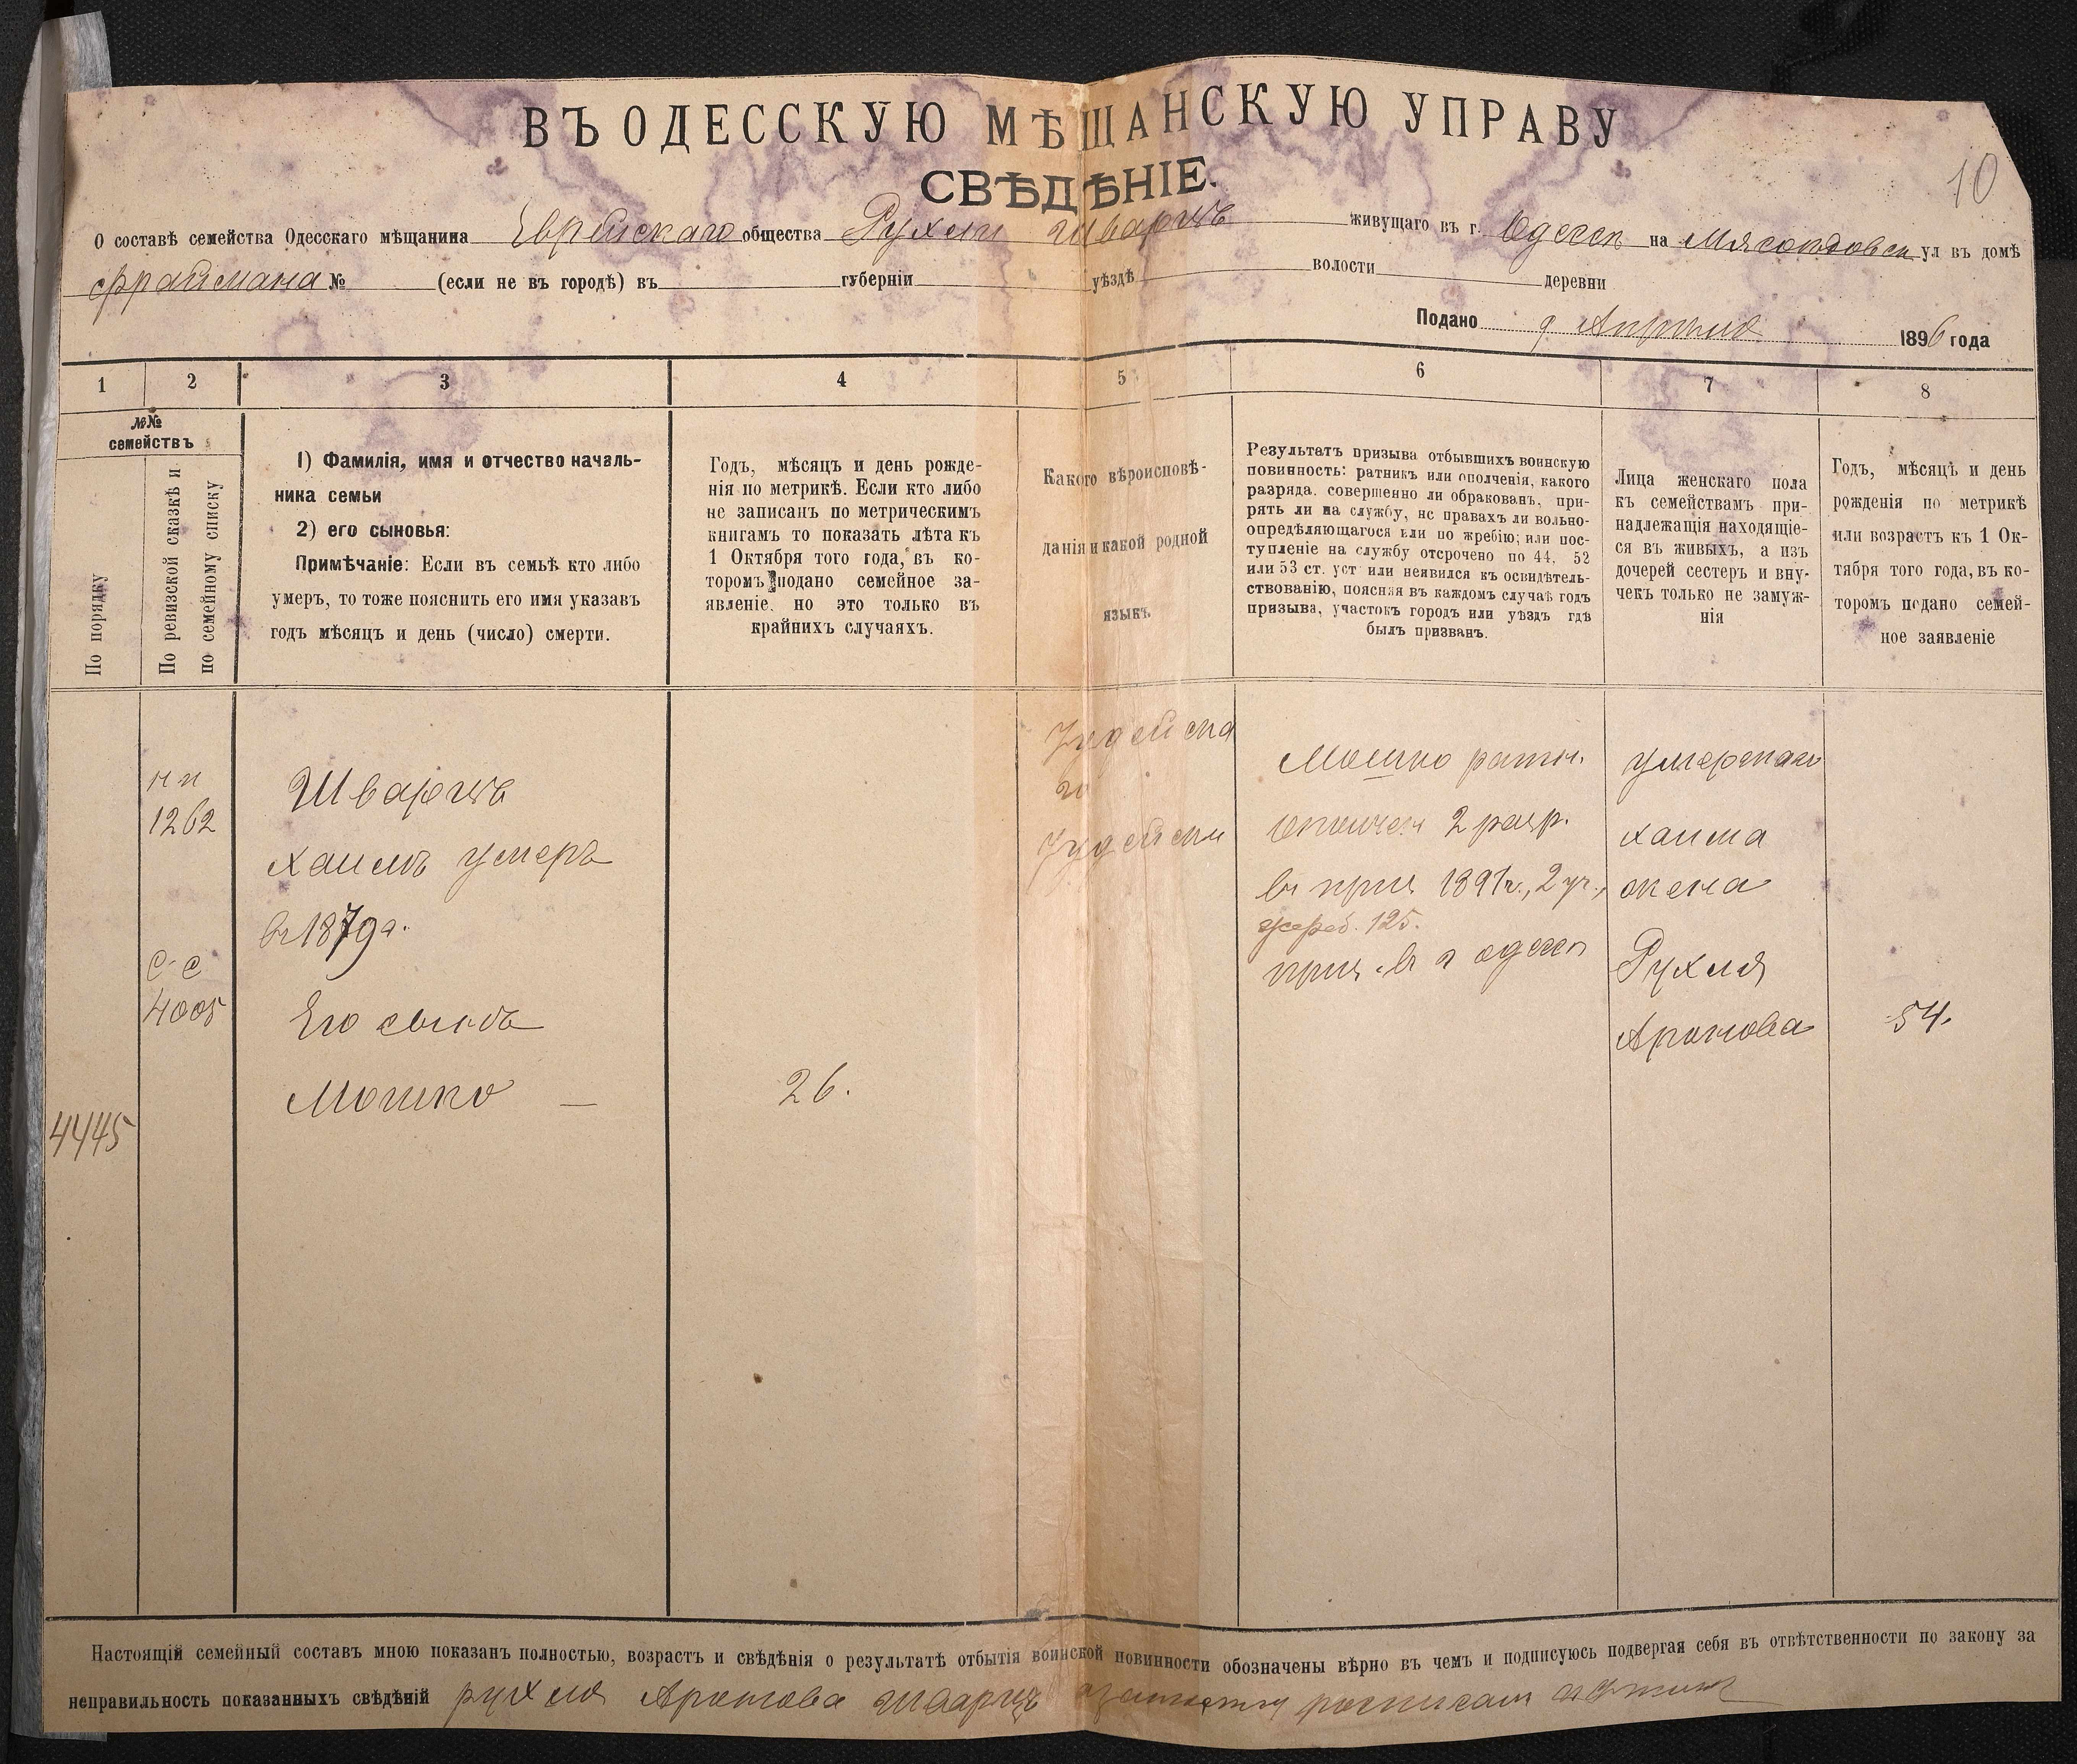 ВЪ ОДЕССКУЮ МѢЩАНСКУЮ УПРАВУ
СВѢДѢНІЕ.
10
О составѣ семейства Одесскаго мѣщанина Еврейскаго общества Рухли Шварцъ живущаго въ г. Одессѣ на Мясоѣдовск ул въ домѣ
Фраймана № (если не въ городѣ) въ губерніи уѣздѣ волости деревни
Подано 9 Апрѣля 1896 года
1 2 3 4 5 6 7 8
№№
семействъ
По порядку
По ревизской сказкѣ и
по семейному списку
1) Фамилія, имя и отчество началь-
ника семьи
2) его сыновья:
Примѣчаніе: Если въ семьѣ кто либо
умеръ, то тоже пояснить его имя указавъ
годъ мѣсяцъ и день (число) смерти.
Годъ, мѣсяцъ и день рожде-
нія по метрикѣ. Если кто либо
не записанъ по метрическимъ
книгамъ то показать лѣта къ
1 Октября того года, въ ко-
торомъ подано семейное за-
явленіе. но это только въ
крайнихъ случаяхъ.
Какого вѣроисповѣ-
данія и какой родной
языкъ
Результатъ призыва отбывшихъ воинскую
повинность: ратникъ или ополченія, какого
разряда. совершенно ли обракованъ, при-
рятъ ли на службу, нс правахъ ли вольно-
опредѣляющагося или по жребію; или пос-
тупленіе на службу отсрочено по 44, 52
или 53 ст. уст или неявился къ освидѣтель-
ствованію, поясняя въ каждомъ случаѣ годъ
призыва, участокъ городъ или уѣздъ гдѣ
былъ призванъ.
Лица женскаго пола
къ семействамъ при-
надлежащія находящіе-
ся въ живыхъ, а изъ
дочерей сестеръ и вну-
чекъ только не замуж-
нія
Годъ, мѣсяцъ и день
рожденія по метрикѣ
или возрастъ къ 1 Ок-
тября того года, въ ко-
торомъ подано семей-
ное заявленіе
4445
1262
С-С
4005
Шварцъ
Хаимъ умеръ
въ 1879 г.
Его сынъ
Мошко —
26.
Іудейска
го
Іудейски
Мошко ратн.
ополчен 2 разр.
въ приз 1891 г., 2 уч.,
жереб. 125.
приз. въ г Одессѣ
умершаго
Хаима
жена
Рухля
Аронова
54.
Настоящій семейный составъ мною показанъ полностью, возрастъ и свѣдѣнія о результатѣ отбытія воинской повинности обозначены вѣрно въ чемъ и подписуюсь подвергая себя въ отвѣтственности по закону за
неправильность показанныхъ свѣдѣній рухля Аронова шварцъ